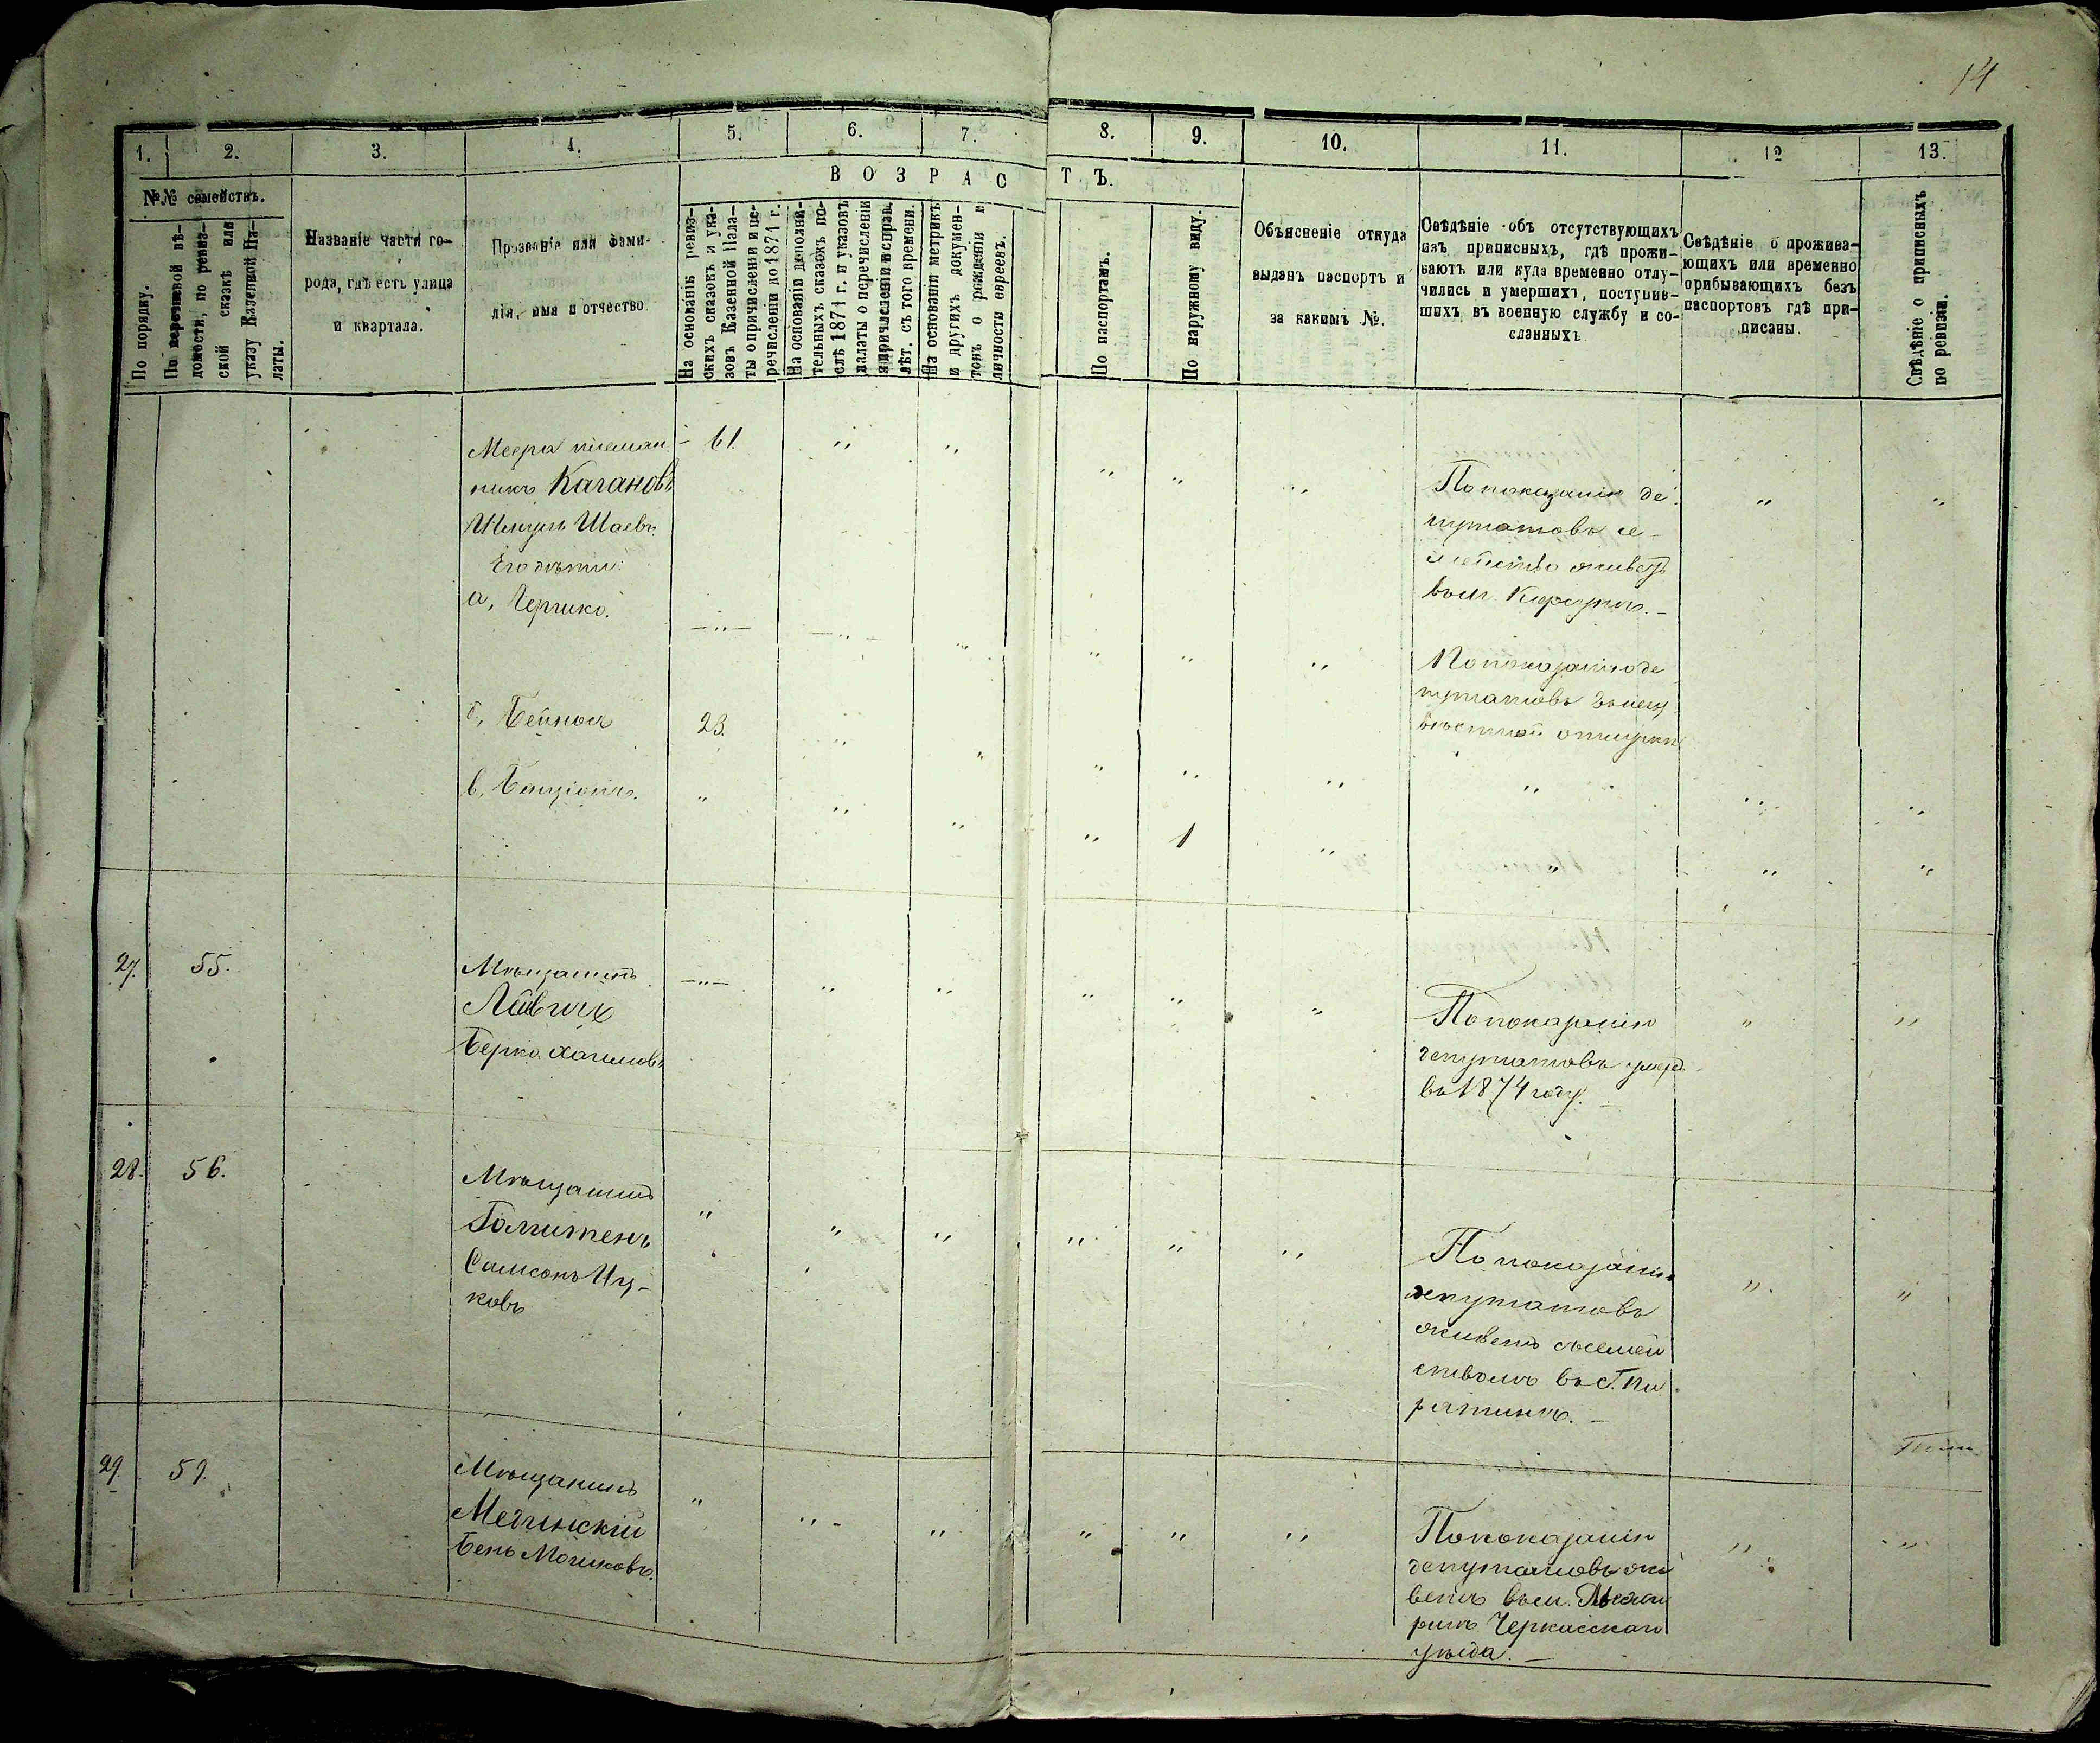 14
1. 2. 3. 4. 5. 6. 7. 8. 9. 10. 11. 12 13.
№№ семействъ.
По порядку.
По перечневой вѣ-
домости, по ревиз-
ской сказкѣ или
указу Казенной Па-
латы.
Названіе части го-
рода, гдѣ есть улица
и квартала.
Прозваніе или фами-
лія, имя и отчество
В О З Р А С Т Ъ.
На основаніи ревиз-
скихъ сказокъ и ука-
зовъ Казенной Пала-
ты о причисленіи и пе-
речисленіи до 1871 г.
На основаніи дополни-
тельныхъ сказокъ по-
слѣ 1871 г. и указовъ
палаты о перечисленіи
и причисленіи и справ.
лѣт. съ того времени.
На основаніи метрикъ
и другихъ докумен-
товъ о рожденіи и
личности евреевъ.
По паспортамъ.
По наружному виду.
Объясненіе откуда
выданъ паспортъ и
за какимъ №.
Свѣдѣніе объ отсутствующихъ
изъ приписныхъ, гдѣ прожи-
ваютъ или куда временно отлу-
чились и умершихъ, поступив-
шихъ въ военную службу и со-
сланныхъ
Свѣдѣніе о прожива-
ющихъ или временно
прибывающихъ безъ
паспортовъ гдѣ при-
писаны.
Свѣдѣніе о приписныхъ
по ревизіи.
Меера племян
никъ Кагановъ
Шмуль Шаевъ.
Его дѣти:
а, Гершко.
61.
По показанію де
путатовъ се-
мейство живетъ
въ м. Корсунѣ.-
По показанію де
путатовъ въ неиз
вѣстной отлучкѣ
б, Бейнош
23.
в, Бенціонъ.
1
27. 55.
Мѣщанинъ
Лейвич
Берко Хаимовъ
По показанію
депутатовъ умеръ
въ 1874 году.-
28. 56.
Мѣщанинъ
Самсонъ Иц-
ковъ
По показанію
депутатовъ
живетъ съ семей
ствомъ въ г. Пи
рятинѣ.-
29. 57.
Мѣщанинъ
Мединскій
Бень Мошковъ.
По показанію
депутатовъ жи
ветъ въ м.
Черкасскаго
уѣзда.-